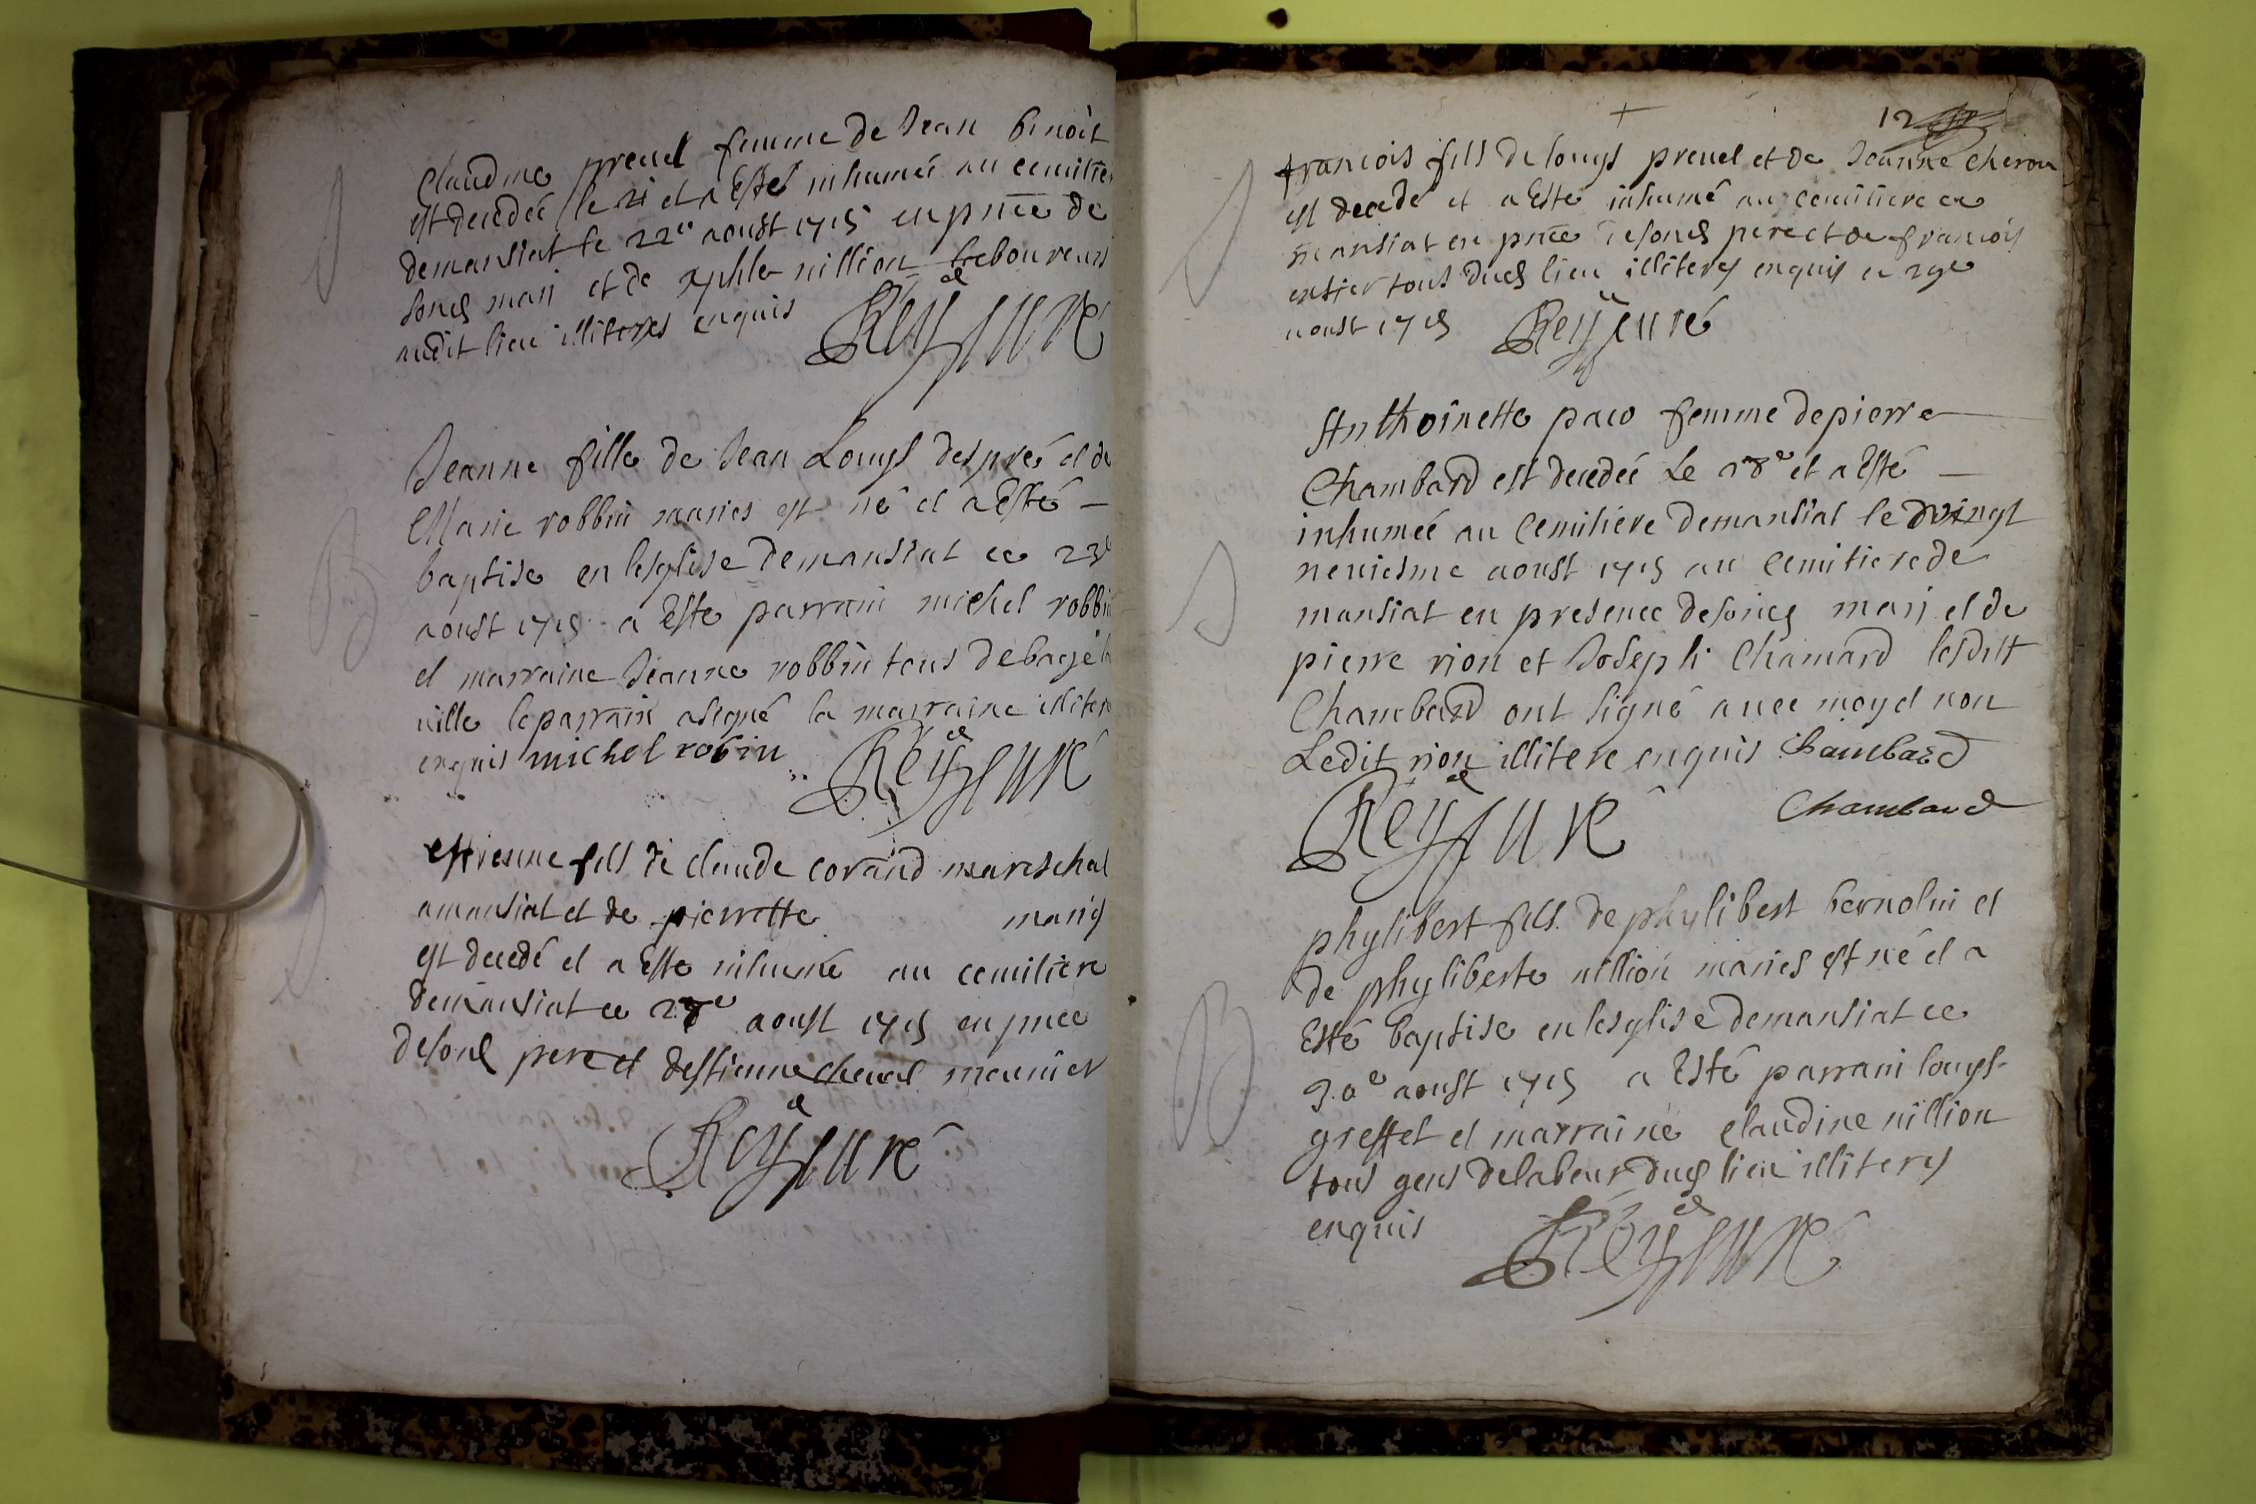 Claudine prevel femme de Jean benoit
est decedée le 21 et a Esté inhumée au cemitie
demansiat le 22e aoust 1715 en pnce de
sond mari et de phle nillion laboureurs
audit lieu illiteres enquis
Rey curé
Jeanne fille de Jean Louys despré et de
Marie robbin maries est né et a Esté
baptise en lesglise demansiat ce 23e
aoust 1715 a Este parrain michel robbin
et marraine Jeanne robbin tous de bagé la
ville le parrain a signé la marraine illitere
enquis michel robin
Rey curé
estienne fils de claude corand mareschal
a mansiat et de pierrette maries
est decedé et a Este inhumé au cemitiere
demansiat ce 28e aoust 1715 en pnce
de sond pere et destienne cheval meunier
Rey curé
12
francois fils de louys prevel et de Jeanne cheron
est decedé et a Esté inhumé au cemitiere de
mansiat en pnce de sond pere et de francois
tous dud lieu illiteres enquis ce 29e
aoust 1715
Rey curé
Anthoinette paco femme de pierre
Chambard est decedée Le 28e et a Esté
inhumée au cemitiere demansiat le vingt
neuviesme aoust 1715 au cemitiere de
mansiat en presence de sond mari et de
pierre rion et Joseph Chamard lesdits
Chambard ont signé avec moy et non
Ledit rion illitere enquis Chambard
Chambard
Rey curé
phylibert fils de phylibert bernolin et
de phyliberte nillion maries est né et a
Esté baptise en lesglise demansiat ce
30e aoust 1715 a Esté parrain louys
greffet et marraine claudine nillion
tous gens de labeur dud lieu illiteres
enquis
Rey curé